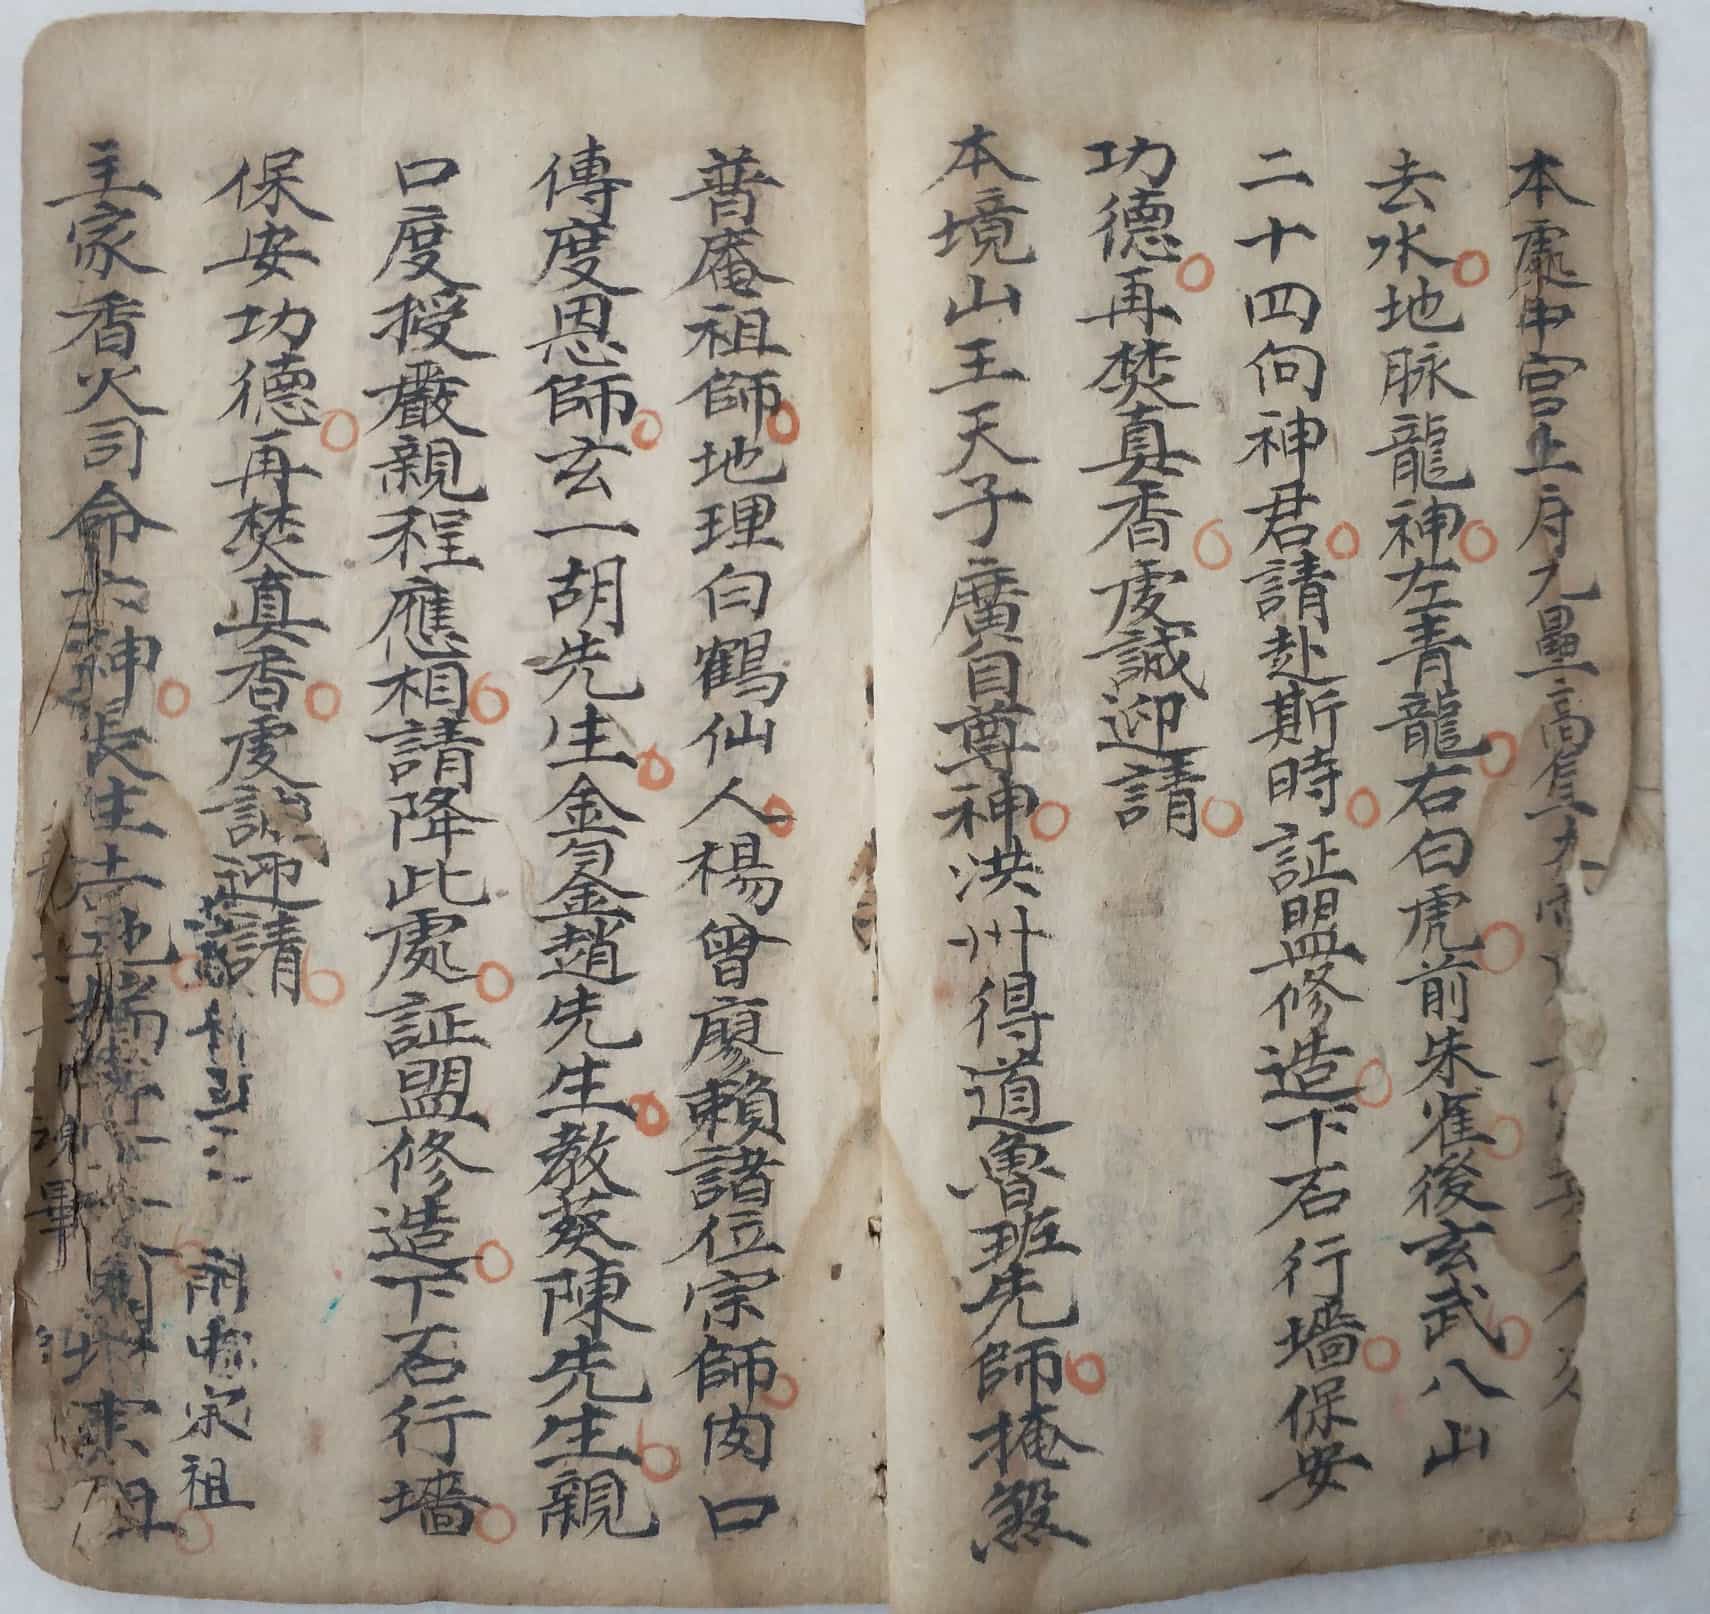 本處中宮土府九壘高皇
去水地脉龍神左青龍右白虎前朱雀後玄武八山
二十四向神君請赴斯時証盟修造下石行墻保安
功德再焚真香虔誠迎請
本境山王天子廣自尊神洪州得道魯班先師掩煞
普庵祖師地理白鶴仙人楊曾廖賴諸位宗師肉口
傳度恩師玄一胡先生金勻金趙先生教葵陳先生親
口度授嚴親程應相請降此處証盟修造下石行墻
保安功德再焚真香虔誠迎請
宗祖
主家香火司命六神長生土地